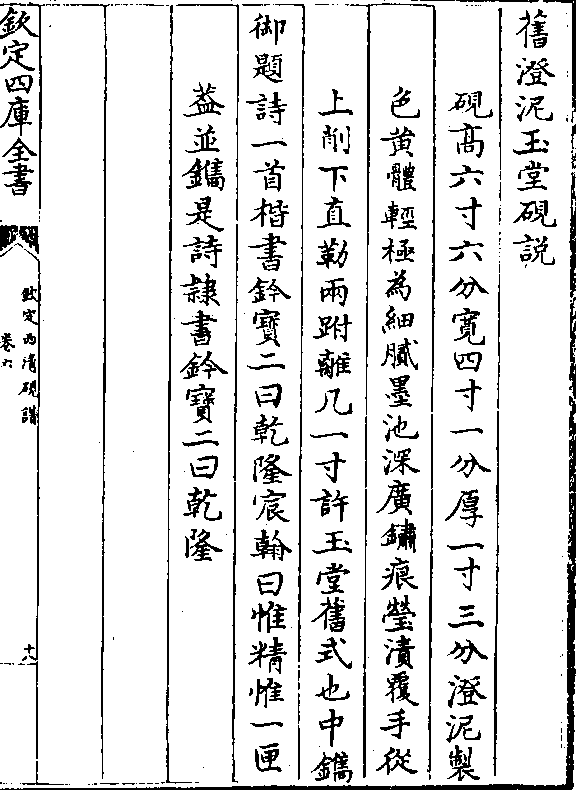 舊澄泥玉堂硯説
硯髙六寸六分寛四寸一分厚一寸三分澄泥製
色黄體輕極為細膩墨池深廣鏽痕瑩漬覆手從
上削下直勒兩跗離几一寸許玉堂舊式也中鐫
御題詩一首楷書鈐寳二曰乾隆宸翰曰惟精惟一匣
葢並鐫是詩隸書鈐寳二曰乾隆
欽定四庫全書
欽定西清硯譜
卷六
十八